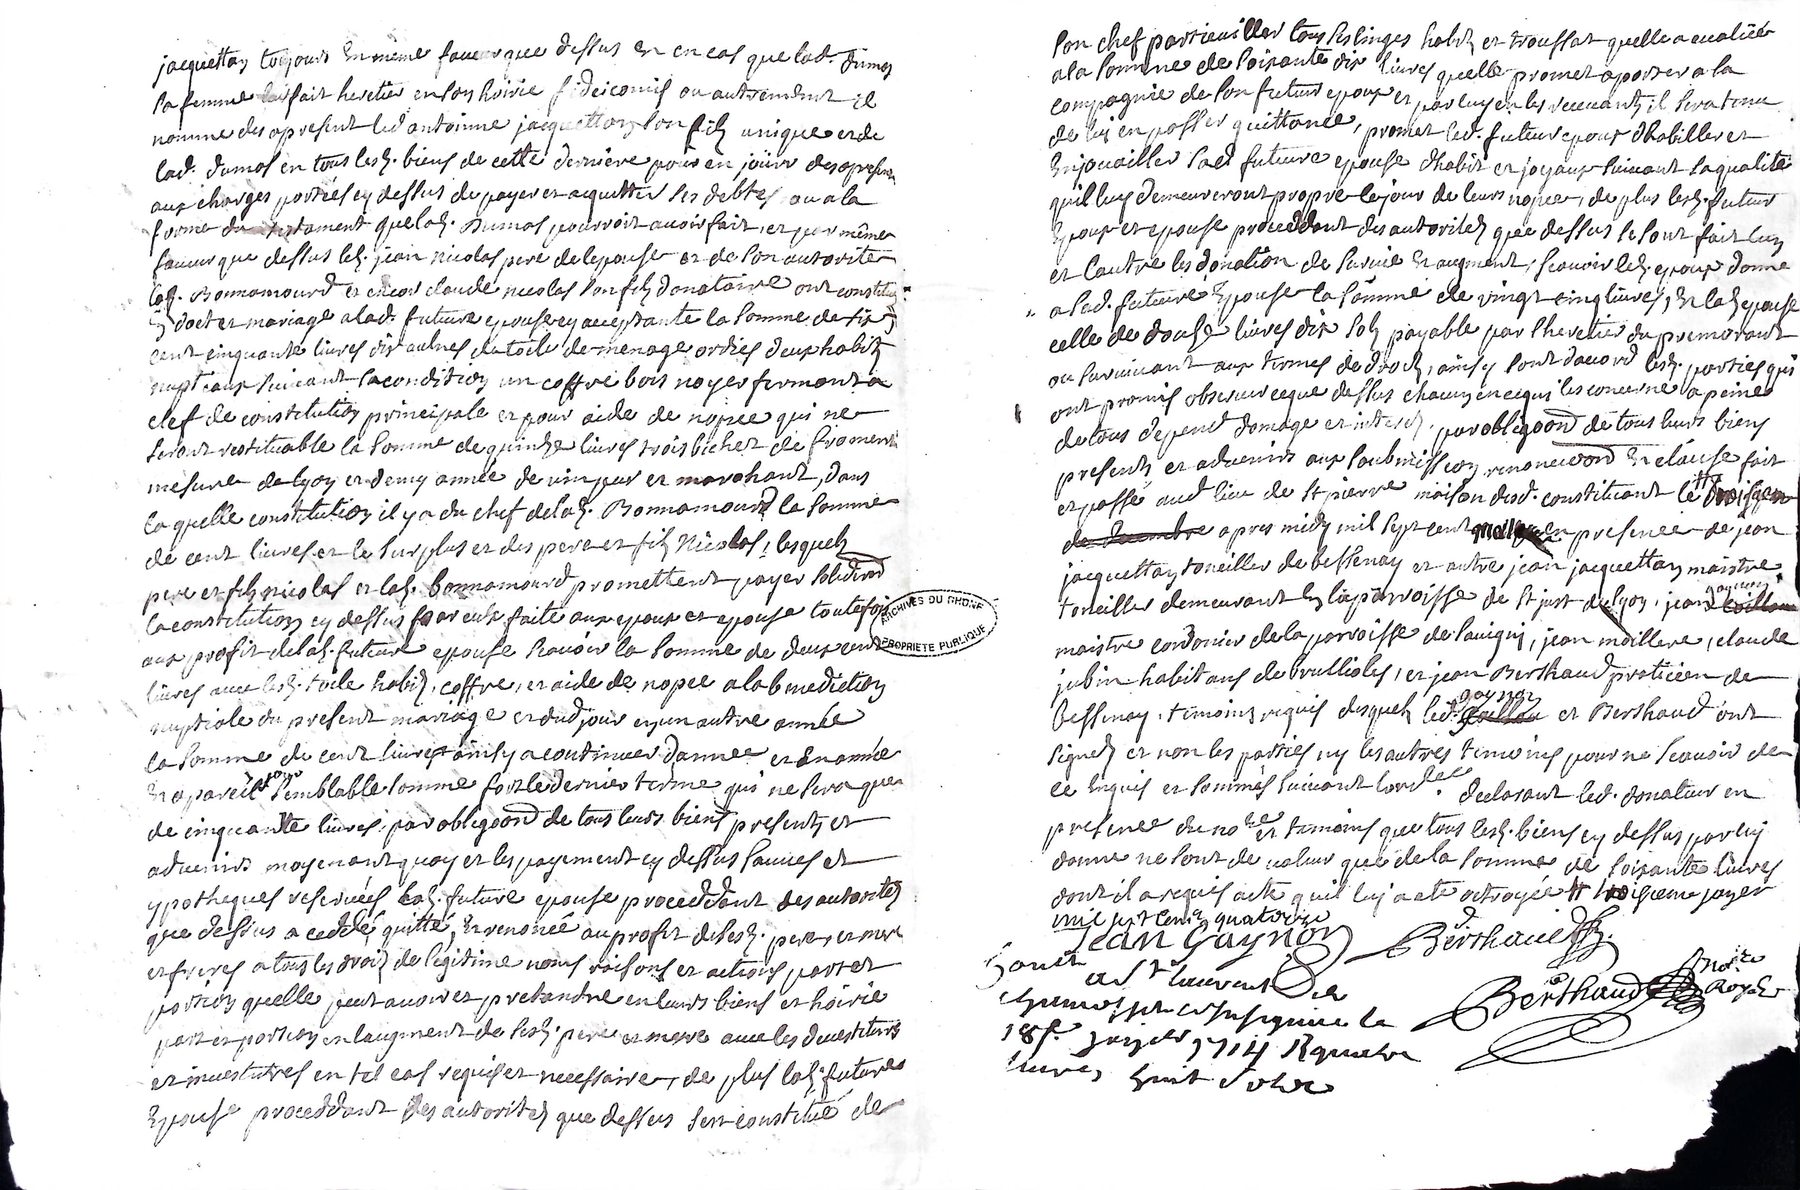 jacquettay toujours en meme faveur que dessus en en cas que lad. dumas
sa femme fait heretier en son hoirie fideicomis ou autrement il
nomme des apresent led antoinne jacquettay son filz unique et de
lad. dumas en tous lesd. biens de cette derniere pour en joüir des apresent
aux charges portées cy dessus de payer et aquitter ses debtes ou a la
forme du testament que lad. Dumas pourroit avoir fait, et par même
faveur que dessus led. jean nicolas pere de lepouse et de son autorité
lad. Bonnamourd et encor claude nicolas son filz donataire ont constitué
en doct et mariage a lad. future epouse cy acceptante la somme de six
cent cinquante livres dix aulnes de toile de menage ordies deux habitz
nuptiaux suivant sa condition un coffre bois noyer fermant a
clef de constitution principale et pour aide de nopce qui ne
seront restituable la somme de quinze livres trois bichet de froment
mesure de lyon et demy année de vin pur et marchant, dans
la quelle constitution il y a du chef de lad. Bonnamourd la somme
de cent livres et le surplus et des pere et filz Nicolas, lesquelz
pere et filz nicolas et lad. bonnamourd promettent payer solidairemt
la constitution cy dessus par eux faite aux epoux et epouse toutefois
aux profit de lad. future epouse scavoir la somme de deux cent
livres avec lesd. toile habitz, coffre, et aide de nopce a la benediction
nuptiale du present mariage et dud jour en un autre année
la somme de cent livres ainsy a continuer dannee et en année
en apareil jour semblable somme fort le dernier terme qui ne sera que
de cinquante livres, par obligaon de tous leurs biens presentz et
advenirs moyenant quoy et les payement cy dessus sauves et
ypotheques reservées lad. future epouse proceddant des autoritez
que dessus a ceddé, quitté, et renoncé au profit de lesd. pere et mere
et freres a tous les droitz de legitime noms raisons et actions part et
portion quelle peut avoir et pretandre en leurs biens et hoirie
part et portion en laugment de lesd. pere et mere avec les devestitures
et investitures en tel cas requis et necessaire, de plus lad. future
epouse proceddant des autoritez que dessus sest constitué de
son chef particuillier tous ses linges habitz et troussat quelle a evaliée
a la somme de soixante dix livres quelle promet aporter a la
compagnie de son futeur epoux et par luy en les recevant, il sera tenu
de luy en passer quittance, promet led. futeur epoux dhabiller et
enjouailler sad future epouse dhabit et joyaux suivant sa qualité
quil luy demeureront propre le jour de leurs nopce, de plus lesd. futur
epoux et epouse proceddant des autoritez que dessus se sont fait lun
et lautre les donation de survie et augment, scavoir led. epoux donne
a lad. future epouse la somme de vingt cinq livres, et lad epouse
celle de douze livres dix solz payable par lheretier du premorant
ou survivant aux termes de droit, ainsy sont dacord lesd. parties qui
ont promis observer ce que dessus chacun en ce qui les concerne a peine
de tous depend domage et interest, par obligaon de tous leurs biens
presentz et advenirs aux soubmission renonciaon et clause fait
et passé aud lieu de st pierre maison dud. constituant le troisieme
de decembre apres midy mil sept cent en presence de jean
jacquettay toneillier de bessenay et autre jean jacquettay maistre
toneillier demeurant en la parroisse de st just de lyon, jean gaynon
maistre cordonier de la parroisse de savigni, jean moillere, claude
jubin habitans de brullioles, et jean Berthaud praticien de
bessenay, temoins requis desquelz led. gaynon et Berthaud ont
signez et non les parties ny les autres temoins pour ne scavoir de
ce enquis et sommés suivant lord.ce declarant led. donateur en
presence du no.re et temoins que tous lesd. biens cy dessus par luy
donne ne sont de valeur que de la somme de soixante livres
dont il a requis acte quil luy a ete octroyée # troisieme janvier
mil sept cent quatorze
Jean Gaynon Berthaud
a St laurent de
chamousset
18e janvier 1714 R quatre
livres huit solz
Berthaud no.re Royal
ARCHIVES DU RHONE
PROPRIETE PUBLIQUE